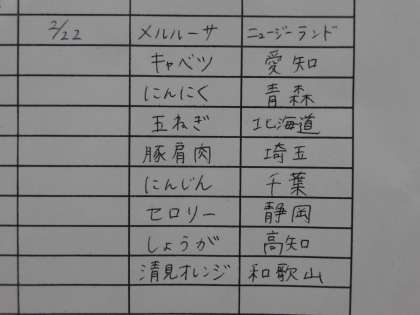 2/22 メルルーサ ニュージーランド
キャベツ 愛知
にんにく 青森
玉ねぎ 北海道
豚肩肉 埼玉
にんじん 千葉
セロリー 静岡
しょうが 高知
清見オレンジ 和歌山